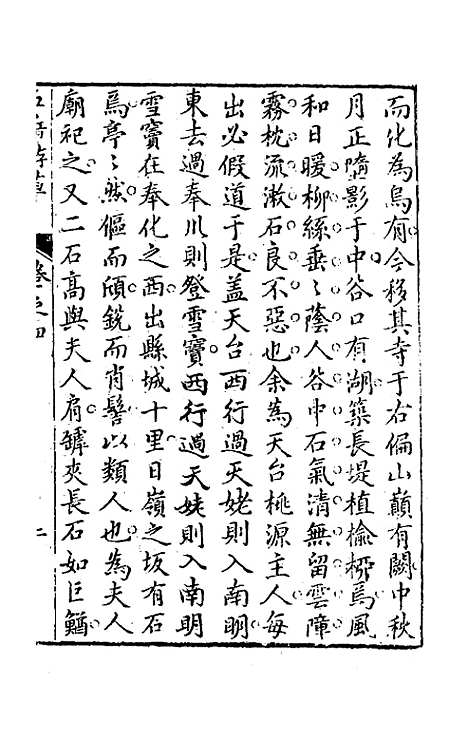 而化為烏有今移其寺于右偏山巔有闕中秋
月正墮影于中谷口有湖築長堤植榆柳焉風
和日暖柳絲垂〻蔭人谷中石氣清無留雲障
霧枕流漱石良不惡也余為天台桃源主人每
出必假道于是盖天台西行過天姥則入南明
東去過奉川則登雪竇西行過天姥則入南明
雪竇在奉化之西出縣城十里日嶺之坂有石
焉亭〻然傴而頎銳而肖髻以類人也為夫人
廟祀之又二石高與夫人肩罅夾長石如巨鰌
卷之四
二